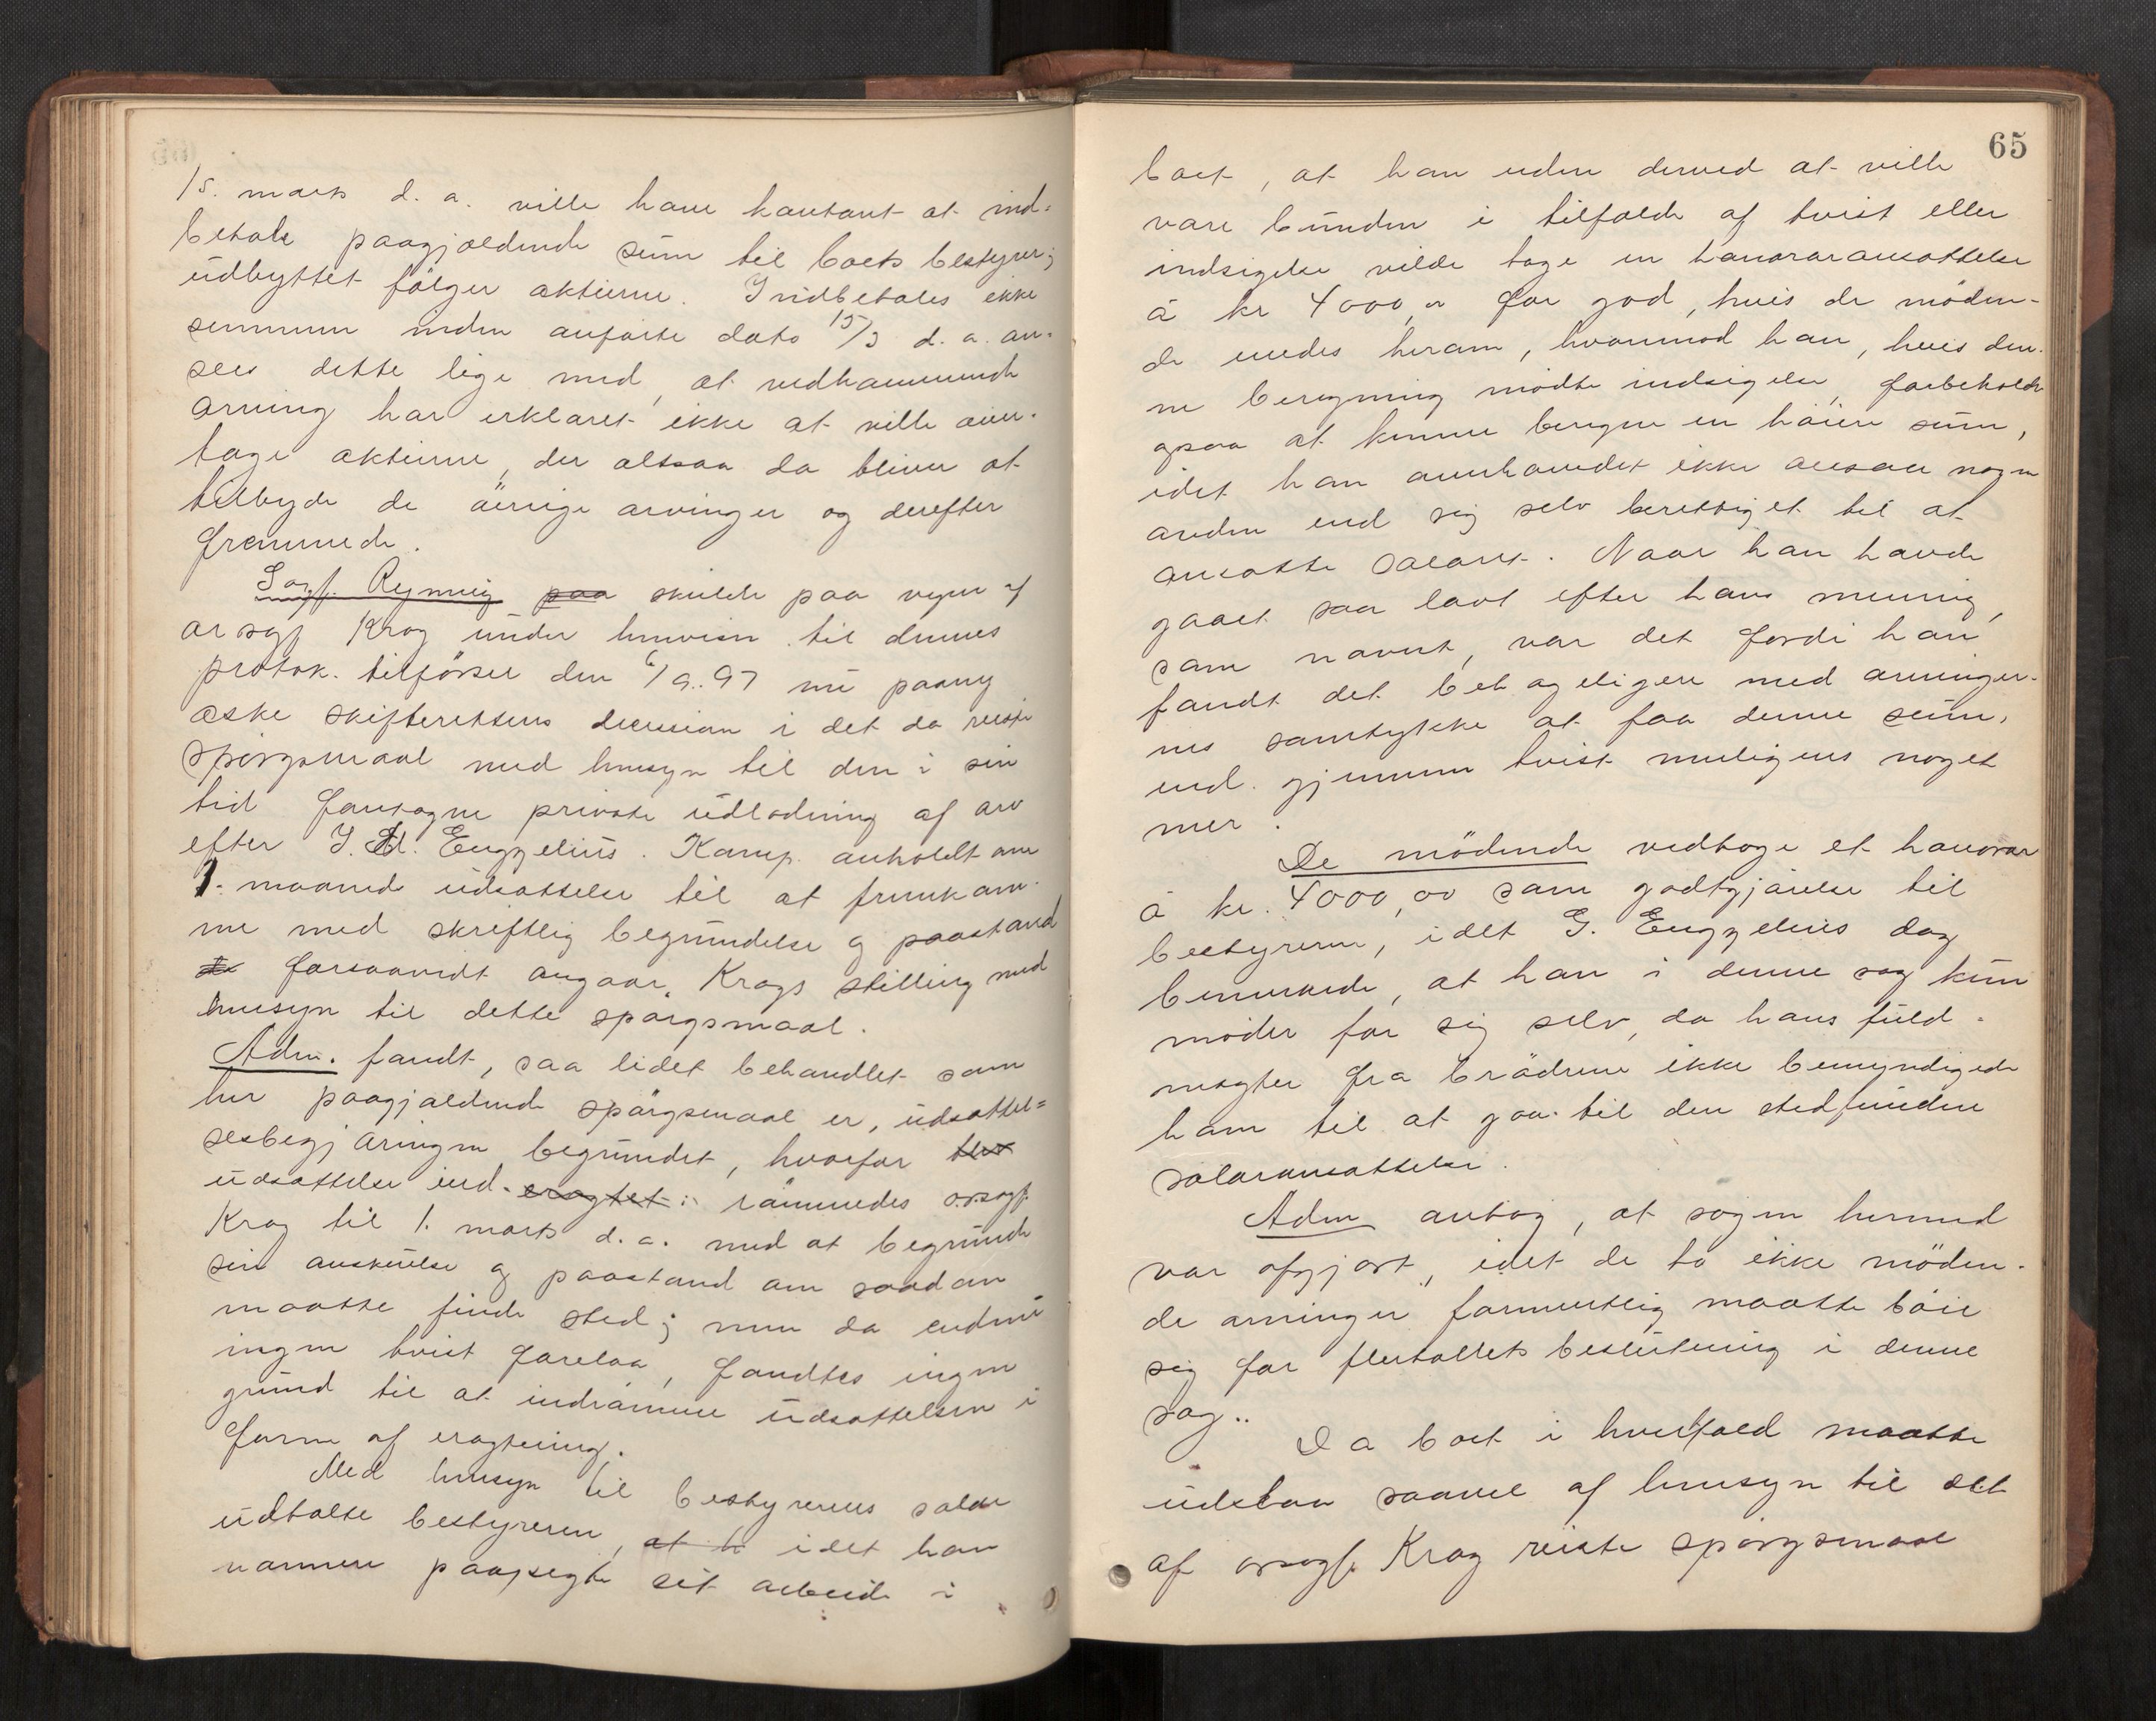 15. mars d. a. ville have kontant at ind-
betale paagjældende sum til boets bestyrer;
udbyttet følger aktierne. Indbetales ikke
summen inden anførte dato 15/3 d. a. an-
sees dette lige med, at vedkommende
arving har erklæret ikke at ville over-
tage aktierne, der altsaa da bliver at
tilbyde de øvrige arvinger og derefter
fremmede.
Sagf. Rynning paa skulde paa vegne af
orsgf Krog under henvisn. til dennes
protok. tilførsel den 6/9.97 nu paany
æske skifterettens decision i det da reiste
spørgsmaal med hensyn til den i sin
tid foretagne private udlodning af arv
efter J. Ed. Engzelius. Komp. anholdt om
1. maaneds udsættelse til at fremkom-
me med skriftlig begrundelse og paastand
forsaavidt angaar Krogs stilling med
hensyn til dette spørgsmaal.
Adm. fandt, saa lidet behandlet som
her paagjældende spørgsmaal er, udsættel-
sesbegjæringen begrundet, hvorfor blev
udsættelse ind- eragtet: rømmedes orsagf.
Krog til 1. marts d. a. med at begrunde
sin anskuelse og paastand om saadan
maatte finde sted; men da endnu
ingen tvist forelaa, fandtes ingen
grund til at indrømme udsættelsen i
form af eragtning.
Med hensyn til bestyrerens salær
udtalte bestyreren, at h idet han
nærmere paapegte sit arbeide i
65
boet, at han uden derved at ville
være bunden i tilfælde af tvist eller
indsigelse vilde tage en honoraransættelse
à kr 4000,00 for god, hvis de møden-
de enedes herom, hvorimod han, hvis den-
ne beregning mødte indsigelse, forbeholdt
ogsaa at kunne beregne en høiere sum,
idet han overhovedet ikke ansaa nogen
anden end sig selv berettiget til at
ansætte salæret. Naar han havde
gaaet saa lavt efter hans mening,
som nævnt, var det fordi han
fandt det behageligere med arvinger-
nes samtykke at faa denne sum,
end gjennem tvist muligens noget
mer.
De mødende vedtoge et honorar
à kr. 4000,00 som godtgjørelse til
bestyreren, idet G. Engzelius dog
bemærkede, at han i denne sag kun
møder for sig selv, da hans fuld-
magter fra brødrene ikke bemyndigede
ham til at gaa til den stedfundne
salæransættelse.
Adm antog, at sagen hermed
var afgjort, idet de to ikke møden-
de arvinger formentlig maatte bøie
sig for flertallets beslutning i denne
sag..
Da boet i hvertfald maatte
udstaa saavel af hensyn til det
af orsagf. Krog reiste spørgsmaal